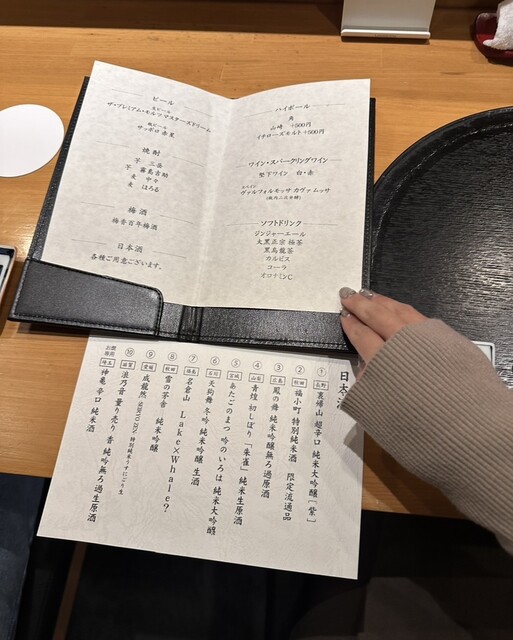 ビール
生ビール
ザ・プレミアム・モルツ マスターズドリーム
瓶ビール
サッポロ 赤星
焼酎
芋 三岳
芋 霧島 吉助
麦 中々
麦 ほろる
梅酒
梅香 百年梅酒
日本酒
各種ご用意ございます。
ハイボール
角
山崎 +500円
イチローズモルト +500円
ワイン・スパークリングワイン
登下ワイン 白・赤
スペイン
ヴァルフォルモッサ カヴァ ムッサ
(瓶内二次発酵)
ソフトドリンク
ジンジャーエール
大黒正宗 極茶
黒烏龍茶
カルピス
コーラ
オロナミンC
日本
① 長野 裏帰山 超辛口 純米大吟醸[紫]
② 秋田 福小町 特別純米酒 限定流通品
③ 広島 鳳の舞 純米吟醸無ろ過原酒
④ 山梨 青煌 初しぼり「朱雀」純米生原酒
⑤ 宮城 あたごのまつ 吟のいろは 純米大吟醸
⑥ 石川 天狗舞 冬吟 純米吟醸 生酒
⑦ 福島 名倉山 Lake×Whale?
⑧ 秋田 雪の茅舎 純米吟醸
⑨ 愛媛 成龍然 特別純米うすにごり生
⑩ 滋賀 浪乃音 量り売り 香 純吟無ろ過生原酒
お燗専用 埼玉 神亀 辛口 純米酒